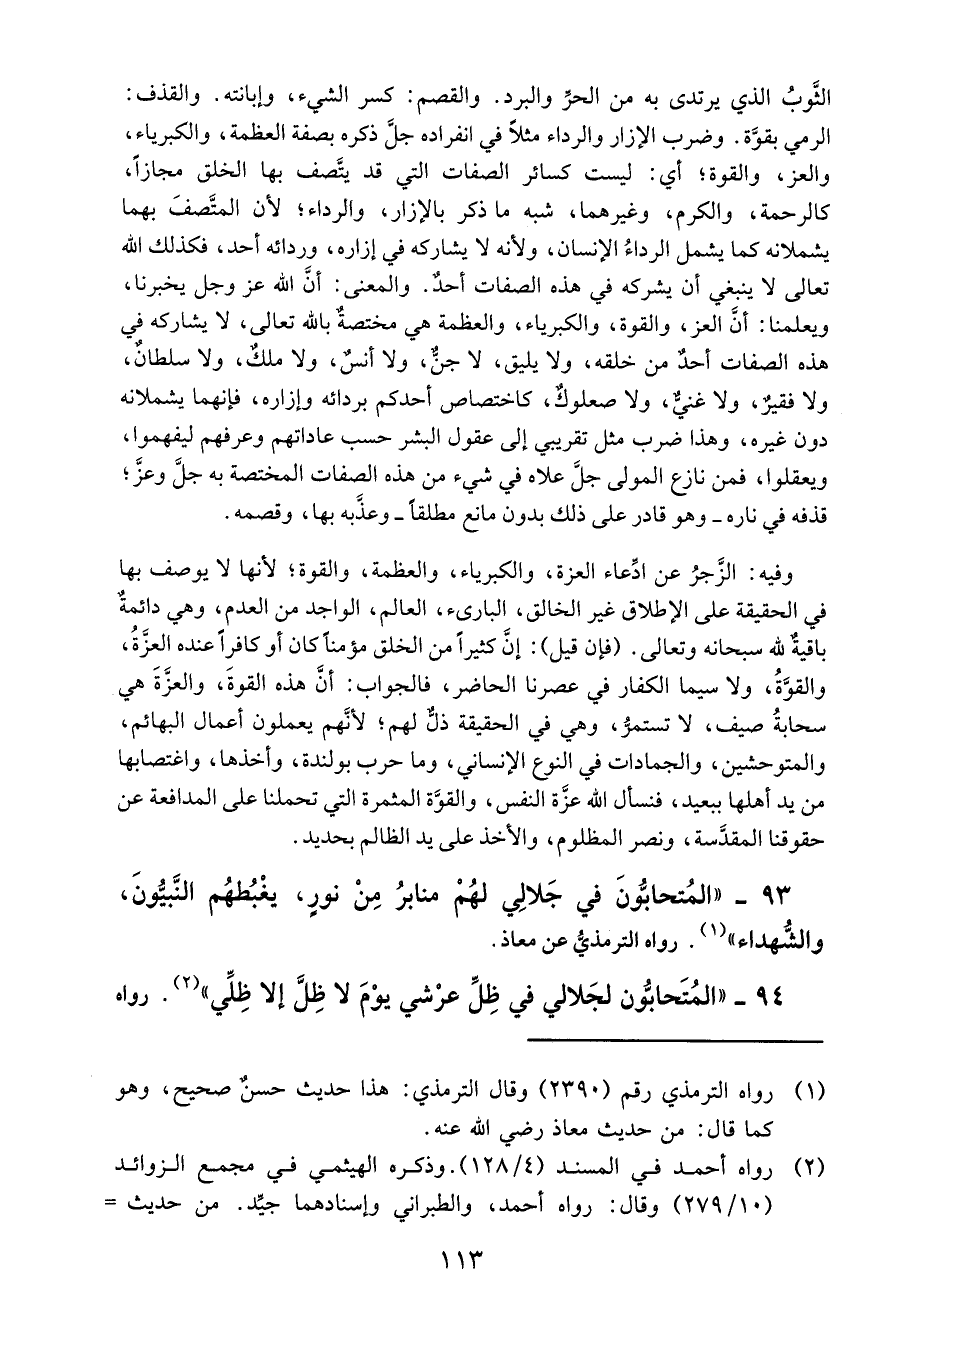 الثَّوبُ الذي يرتدى به من الحرِّ والبرد. والقصم: كسر الشيء، وإبانته. والقذف:
الرمي بقوَّة. وضرب الإزار والرداء مثلاً في انفراده جلَّ ذكره بصفة العظمة، والكبرياء،
والعز، والقوة؛ أي: ليست كسائر الصفات التي قد يتَّصف بها الخلق مجازاً،
كالرحمة، والكرم، وغيرهما، شبه ما ذكر بالإزار، والرداء؛ لأن المتَّصفَ بهما
يشملانه كما يشمل الرداءُ الإنسان، ولأنه لا يشاركه في إزاره، وردائه أحد، فكذلك الله
تعالى لا ينبغي أن يشركه في هذه الصفات أحدٌ. والمعنى: أنَّ الله عز وجل يخبرنا،
ويعلمنا: أنَّ العز، والقوة، والكبرياء، والعظمة هي مختصةٌ بالله تعالى، لا يشاركه في
هذه الصفات أحدٌ من خلقه، ولا يليق، لا جنٌّ، ولا أنسٌ، ولا ملكٌ، ولا سلطانٌ،
ولا فقيرٌ، ولا غنيٌّ، ولا صعلوكٌ، كاختصاص أحدكم بردائه وإزاره، فإنهما يشملانه
دون غيره، وهذا ضرب مثل تقريبي إلى عقول البشر حسب عاداتهم وعرفهم ليفهموا،
ويعقلوا، فمن نازع المولى جلَّ علاه في شيء من هذه الصفات المختصة به جلَّ وعزَّ؛
قذفه في ناره ـ وهو قادر على ذلك بدون مانع مطلقاً ـ وعذَّبه بها، وقصمه.
وفيه: الزَّجرُ عن ادِّعاء العزة، والكبرياء، والعظمة، والقوة؛ لأنها لا يوصف بها
في الحقيقة على الإطلاق غير الخالق، البارىء، العالم، الواجد من العدم، وهي دائمةٌ
باقيةٌ لله سبحانه وتعالى. (فإن قيل): إنَّ كثيراً من الخلق مؤمناً كان أو كافراً عنده العزَّةُ،
والقوَّةُ، ولا سيما الكفار في عصرنا الحاضر، فالجواب: أنَّ هذه القوةَ، والعزَّةَ هي
سحابةُ صيف، لا تستمرُّ، وهي في الحقيقة ذلٌّ لهم؛ لأنَّهم يعملون أعمال البهائم،
والمتوحشين، والجمادات في النوع الإنساني، وما حرب بولندة، وأخذها، واغتصابها
من يد أهلها ببعيد، فنسأل الله عزَّة النفس، والقوَّة المثمرة التي تحملنا على المدافعة عن
حقوقنا المقدَّسة، ونصر المظلوم، والأخذ على يد الظالم بحديد.
٩٣ ـ «المُتحابُّونَ في جَلالِي لهُمْ منابرُ مِنْ نورٍ، يغْبُطهُم النَّبيُّونَ،
والشُّهداء»(١). رواه الترمذيُّ عن معاذ.
٩٤ ـ «المُتَحابُّون لجَلالي في ظِلِّ عرْشي يوْمَ لا ظِلَّ إلا ظِلِّي»(٢). رواه
(١) رواه الترمذي رقم (٢٣٩٠) وقال الترمذي: هذا حديث حسنٌ صحيح، وهو
كما قال: من حديث معاذ رضي الله عنه.
(٢) رواه أحمد في المسند (١٢٨/٤).وذكره الهيثمي في مجمع الزوائد
(٢٧٩/١٠) وقال: رواه أحمد، والطبراني وإسنادهما جيِّد. من حديث =
١١٣